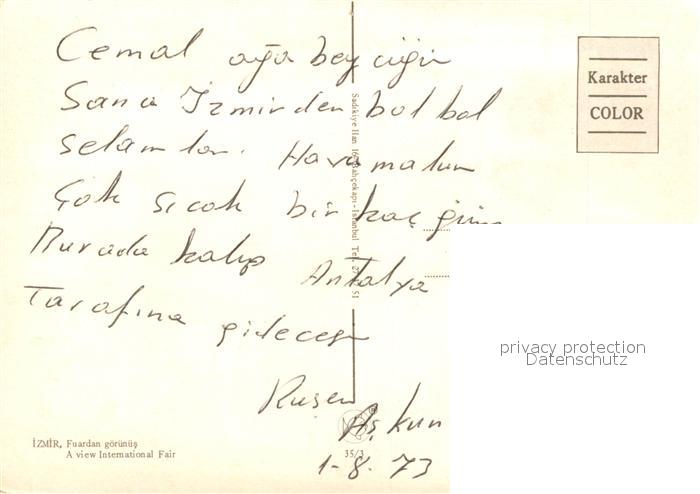 Cemal ağa beyciğim
Sana İzmirden bol bol
selamlar. Hava malum
Çok sıcak bir kaç gün
Burada kalıp Antalya
Tarafına gideceğim
Ruşen
Aşkun
1-8.73
Karakter
COLOR
Sadıkiye Han Bahçekapı-İstanbul Tel.
İZMİR, Fuardan görünüş
A view International Fair
35/3
privacy protection
Datenschutz